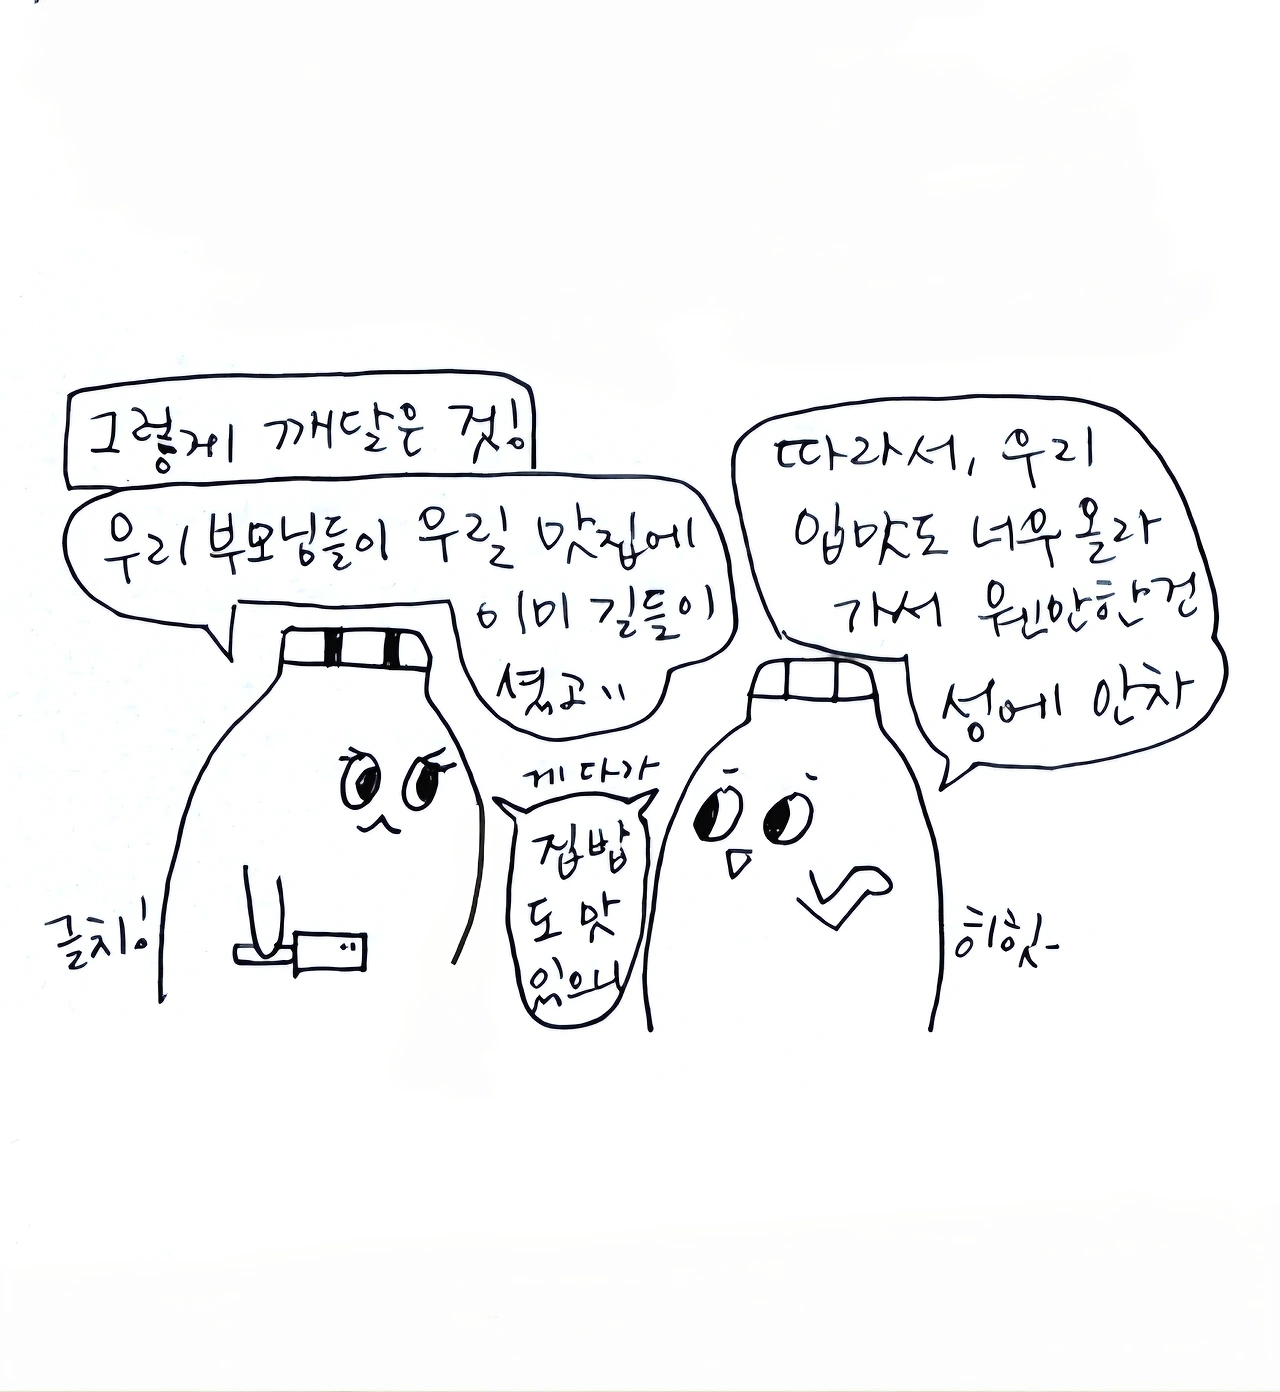 그렇게 깨달은 것!
우리 부모님들이 우릴 맛집에
이미 길들이
셨고"
게다가
집밥
도 맛
있으니
따라서, 우리
입맛도 너무 올라
가서 웬만한건
성에 안차
글치!
히힛-